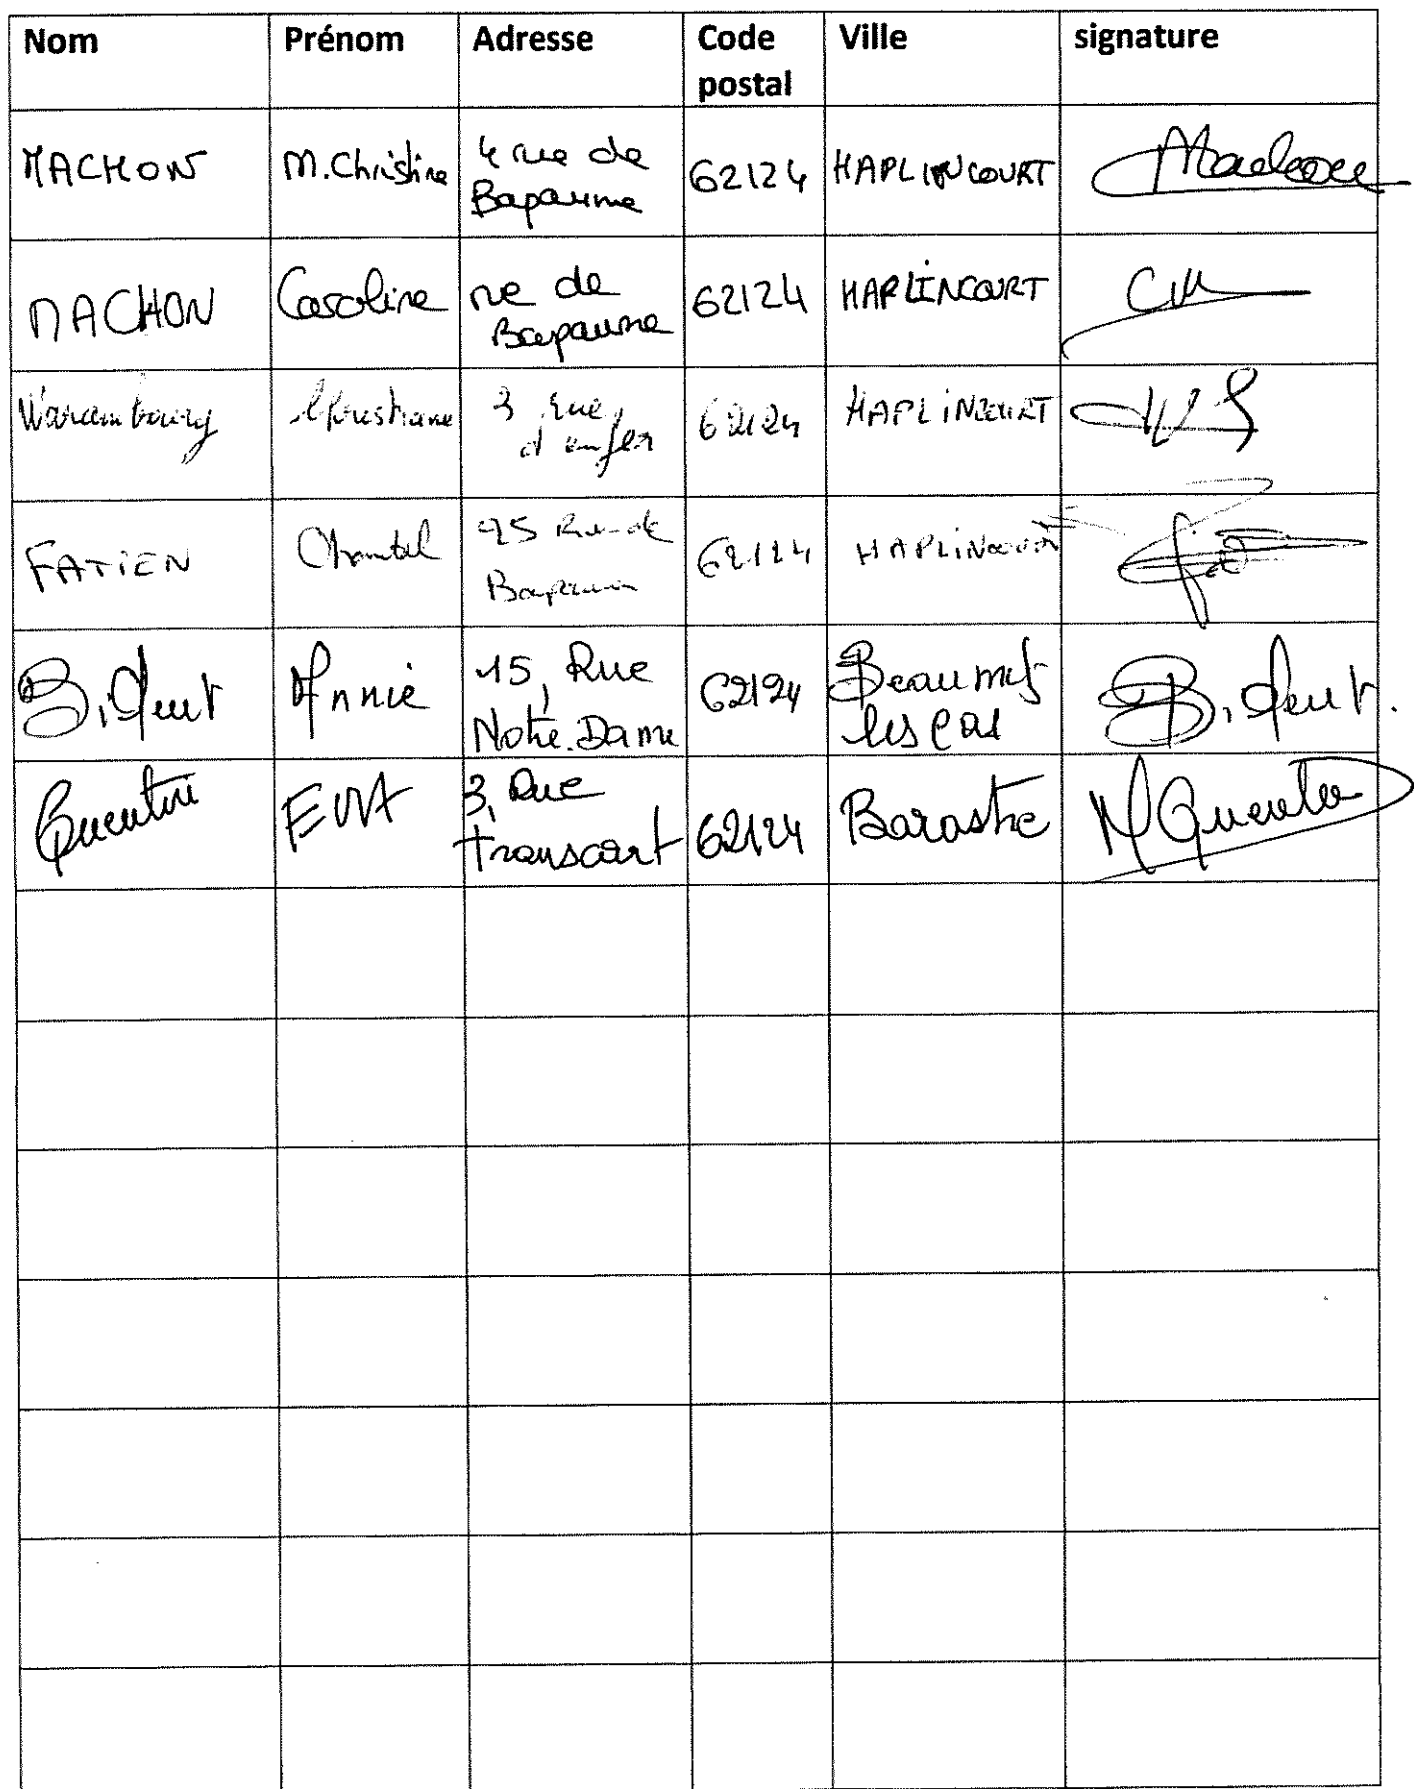 Nom Prénom Adresse Code postal Ville signature
MACHON M.Christine 4 rue de Bapaume 62124 HAPLINCOURT Machon
MACHON Caroline rue de Bapaume 62124 HAPLINCOURT CM
Warambourg Christiane 3 rue d'enfer 62124 HAPLINCOURT
FATIEN Chantal 25 Rue de Bapaume 62124 HAPLINCOURT
Annie 15, Rue Notre.Dame 62124 Beaumetz les
Quentin EVA 3, Rue Transcart 62124 Barastre M Quentin